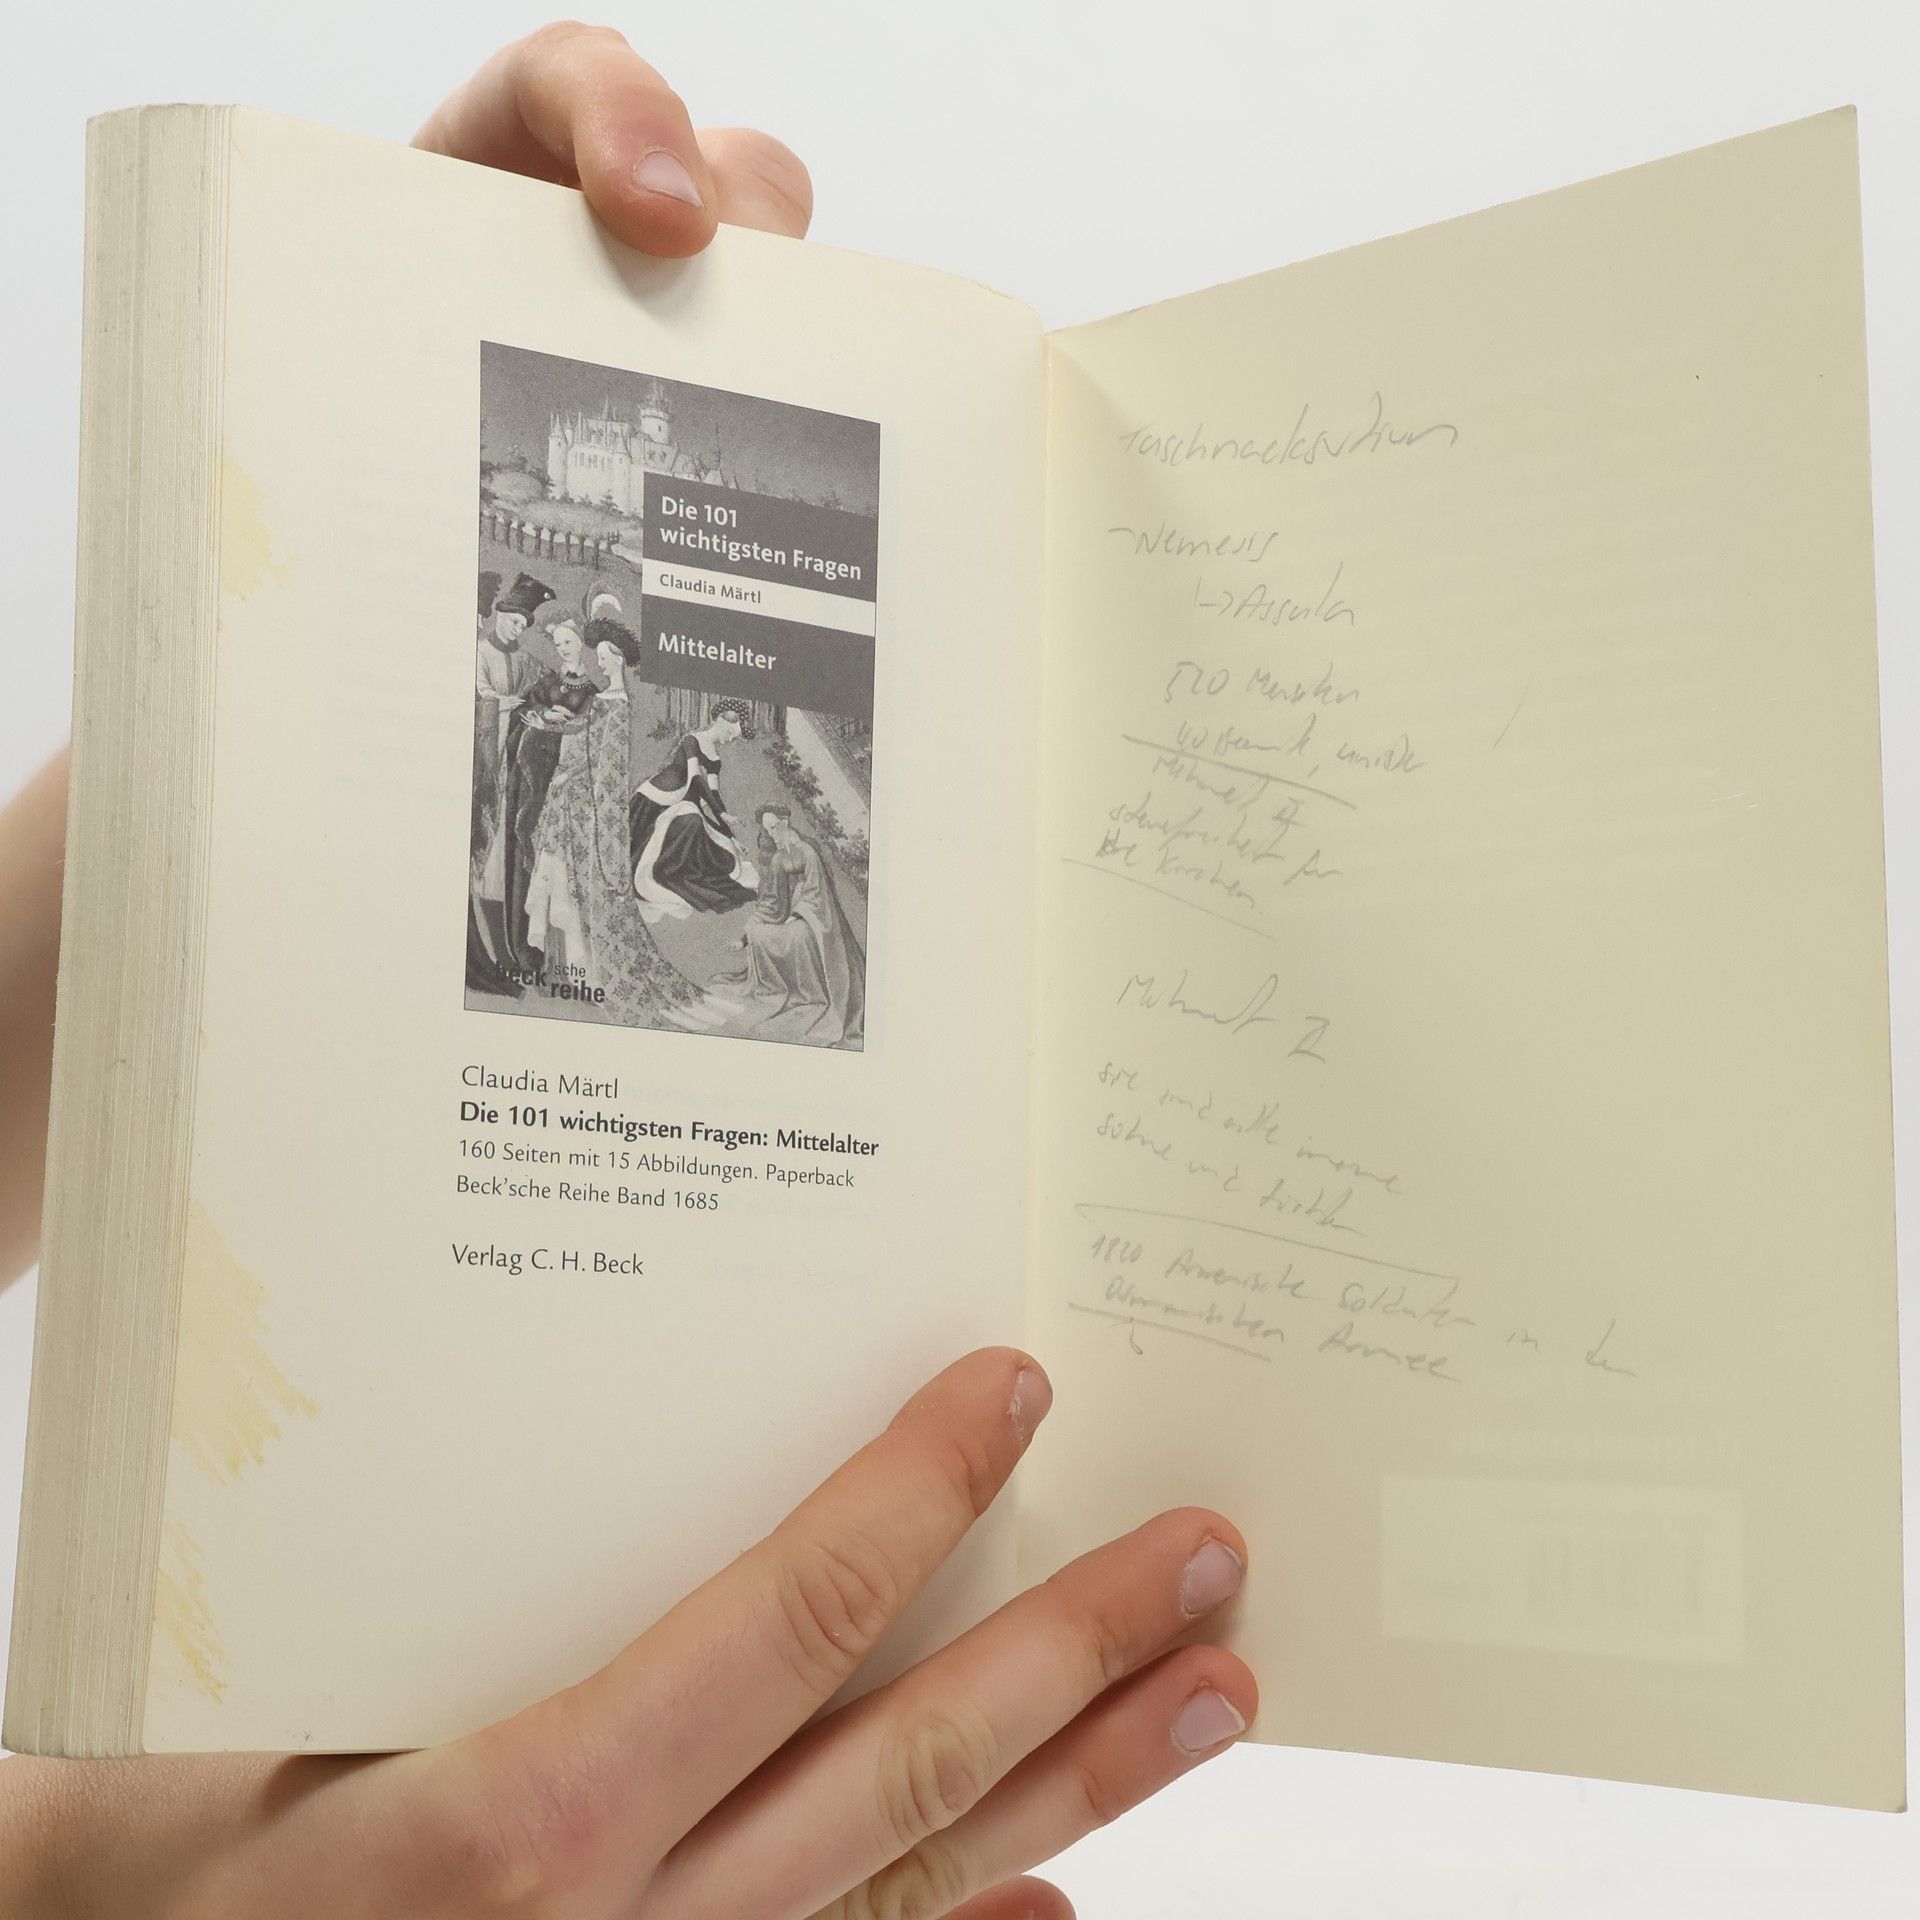 Die 101
wichtigsten Fragen
Claudia Märtl
Mittelalter
beck'sche
reihe
Claudia Märtl
Die 101 wichtigsten Fragen: Mittelalter
160 Seiten mit 15 Abbildungen. Paperback
Beck'sche Reihe Band 1685
Verlag C. H. Beck
Nemesis
520 Menschen
Mehmet II
Steuerfreiheit für
die Kirchen
Mehmet II
sie sind alle meine
Söhne und Töchter
1820 Armenische Soldaten in der
Osmanischen Armee